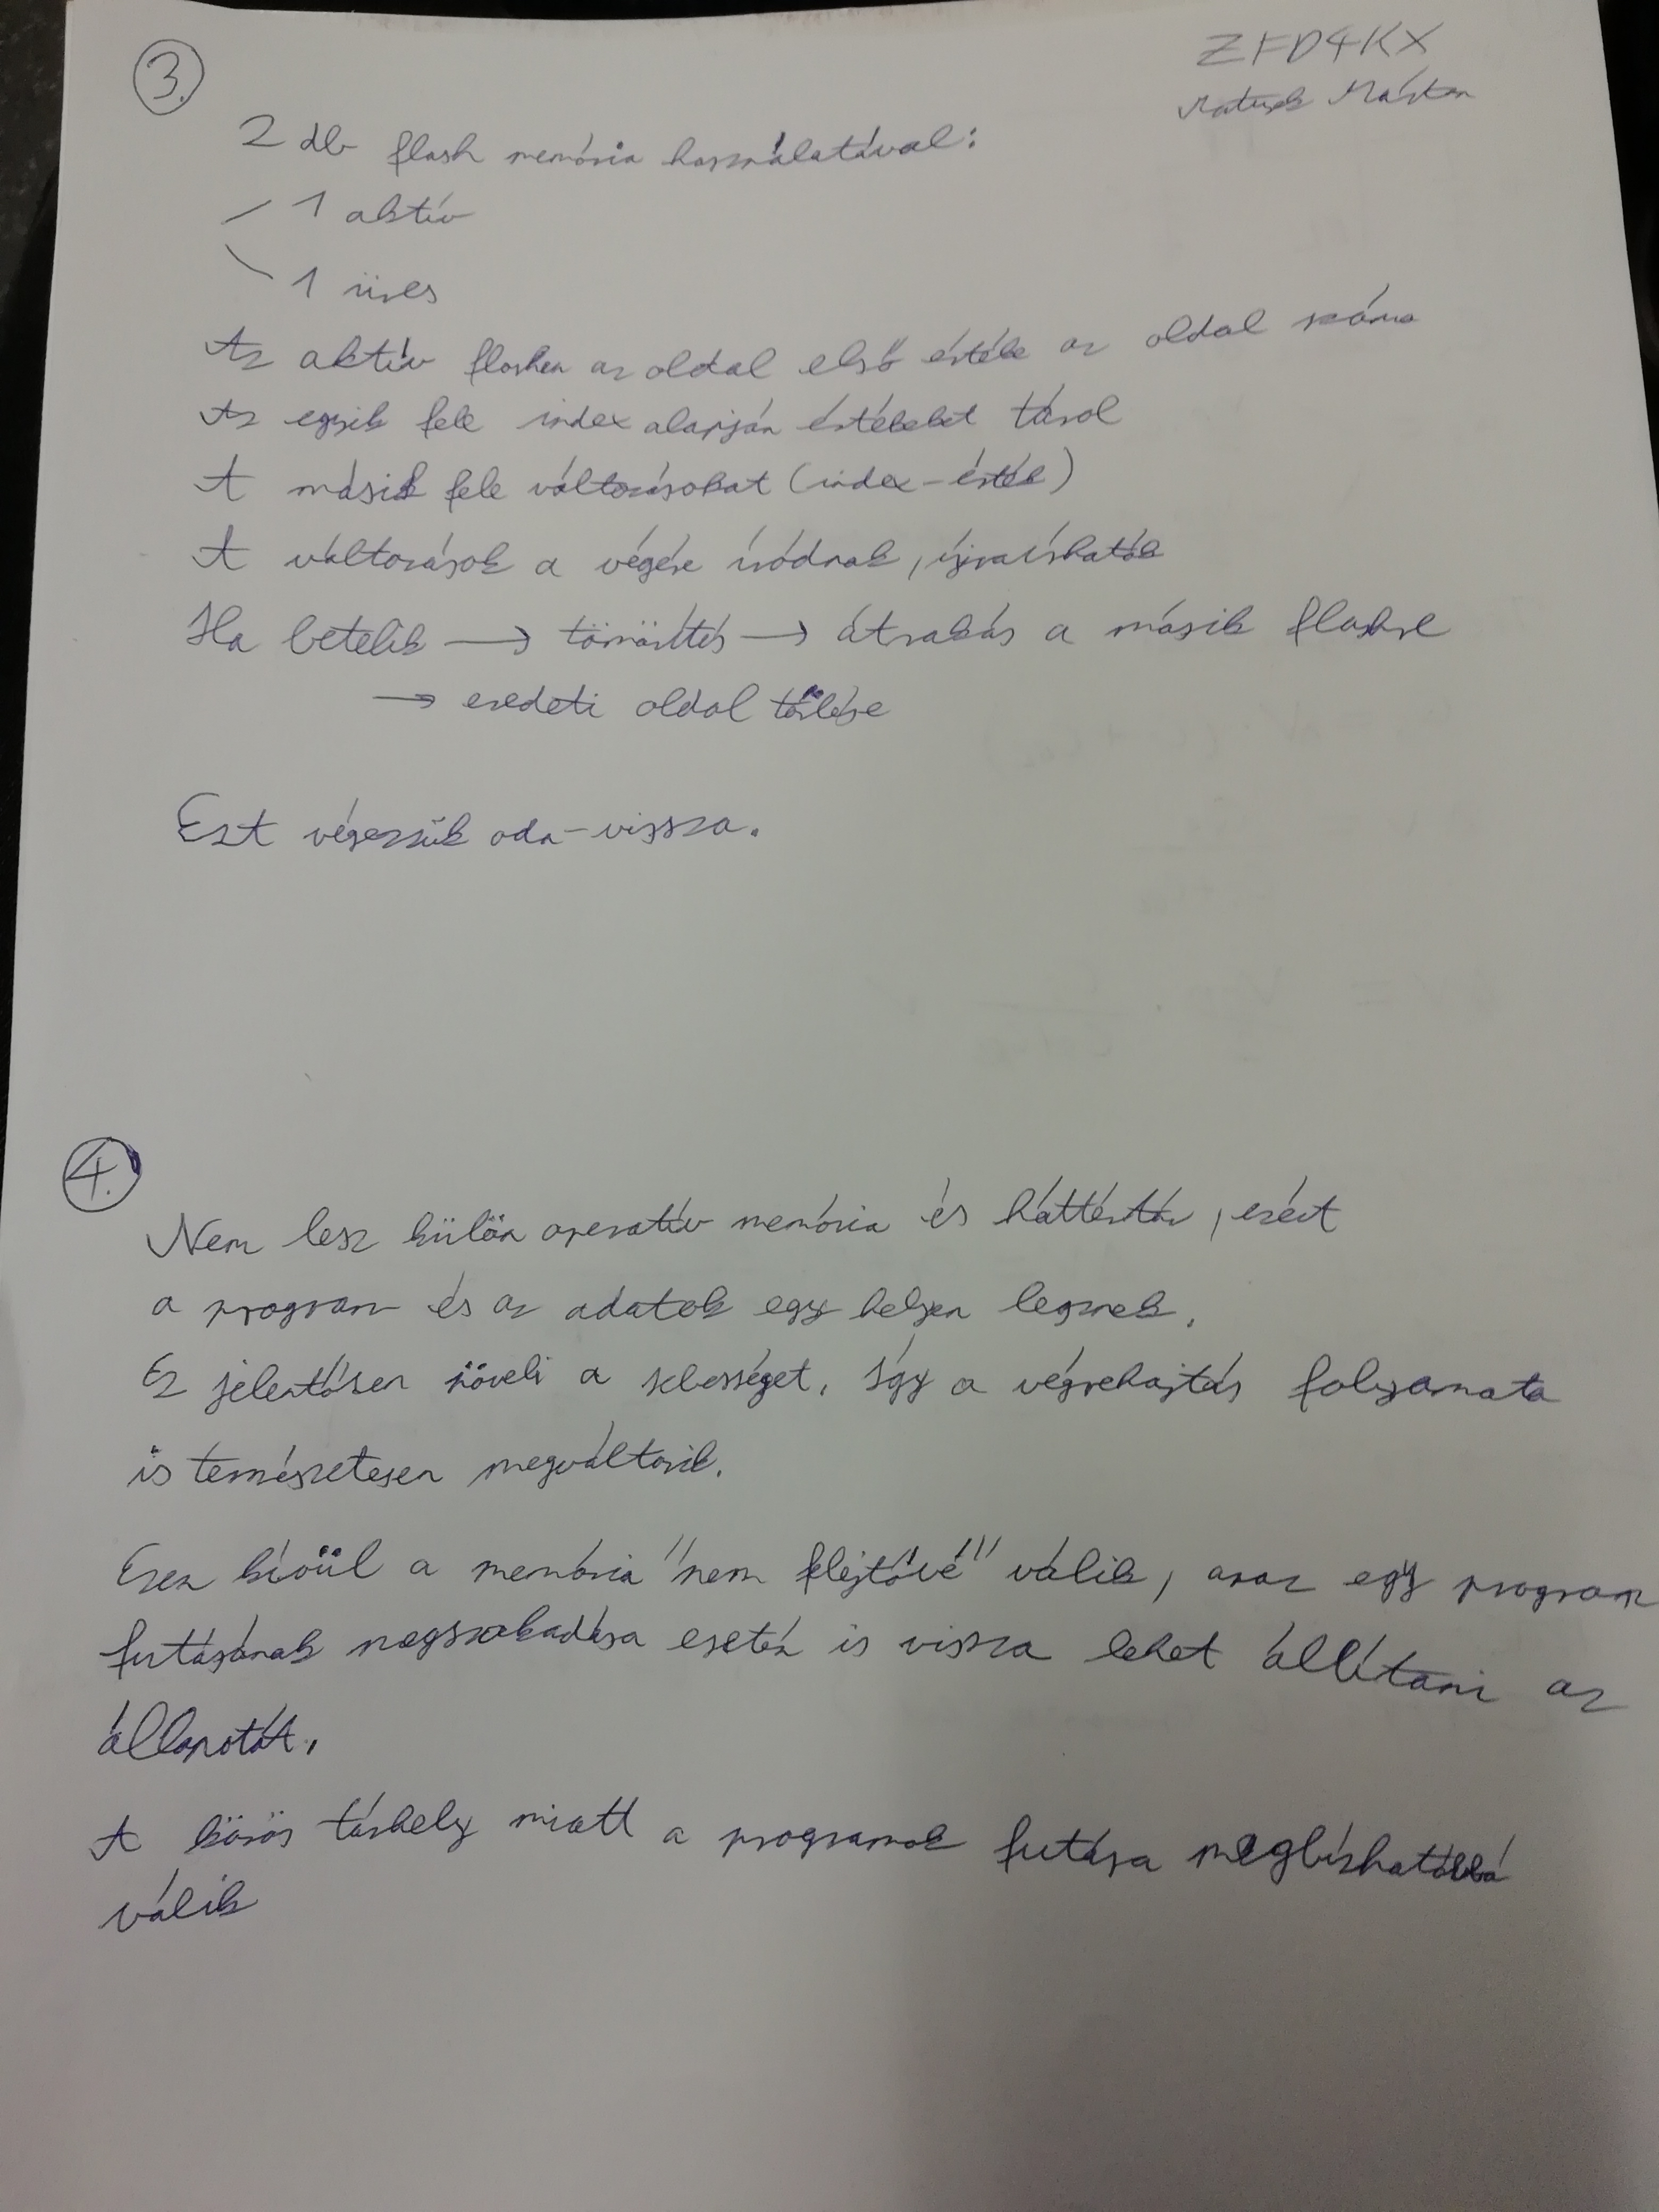 3.
ZFD4KX
Matusek Márton
2 db flash memória használatával:
1 aktív
1 üres
Az aktív flashen az oldal első értéke az oldal száma
Az egyik fele index alapján értékeket tárol
A másik fele változásokat (index-érték)
A változások a végére íródnak, újraírhatók
Ha betelik → tömörítés → átrakás a másik flashre
→ eredeti oldal törlése
Ezt végezzük oda-vissza.
4.
Nem lesz külön operatív memória és háttértár, ezért
a program és az adatok egy helyen lesznek.
Ez jelentősen növeli a sebességet, így a végrehajtás folyamata
is természetesen megváltozik.
Ezen kívül a memória "nem felejtővé" válik, azaz egy program
futásának megszakadása esetén is vissza lehet állítani az
állapotát.
A közös tárhely miatt a programok futása megbízhatóbbá
válik